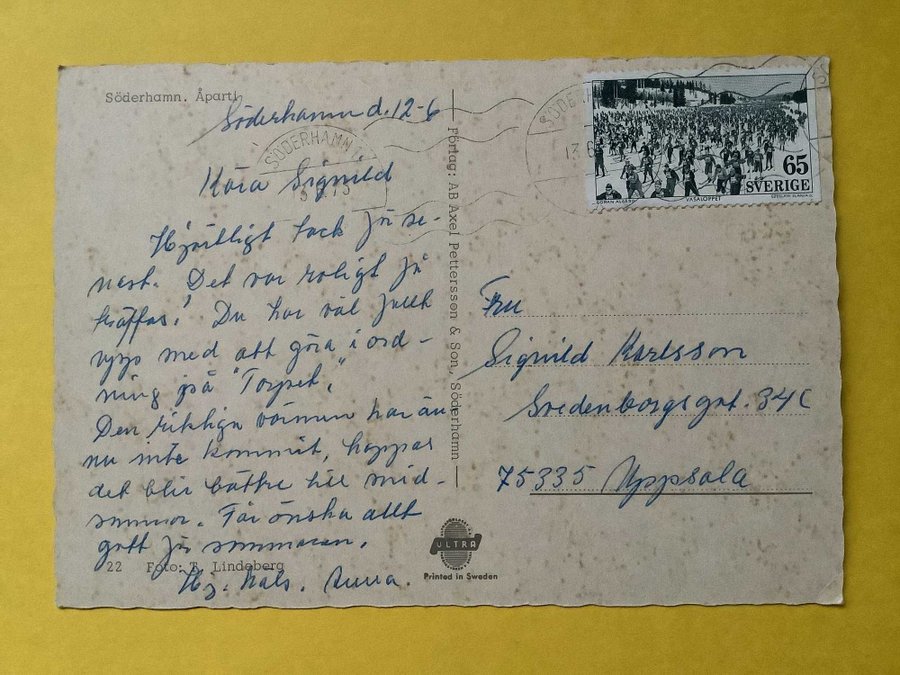 Söderhamn. Åparti
Söderhamn d. 12-6
SÖDERHAMN
Kära Signild
Hjärtligt tack för se-
nast. Det var roligt få
träffas! Du har väl fullt
upp med att göra i ord-
ning på "Torpet."
Den riktiga värmen har än
nu inte kommit, hoppas
det blir bättre till mid-
sommar. Får önska allt
gott för sommaren.
Hj. häls. Anna.
22 Foto: T. Lindeberg
Förlag: AB Axel Pettersson & Son, Söderhamn
ULTRA
Printed in Sweden
65
SVERIGE
VASALOPPET
Fru
Signild Karlsson
Svedenborgsgat. 34C
75335 Uppsala